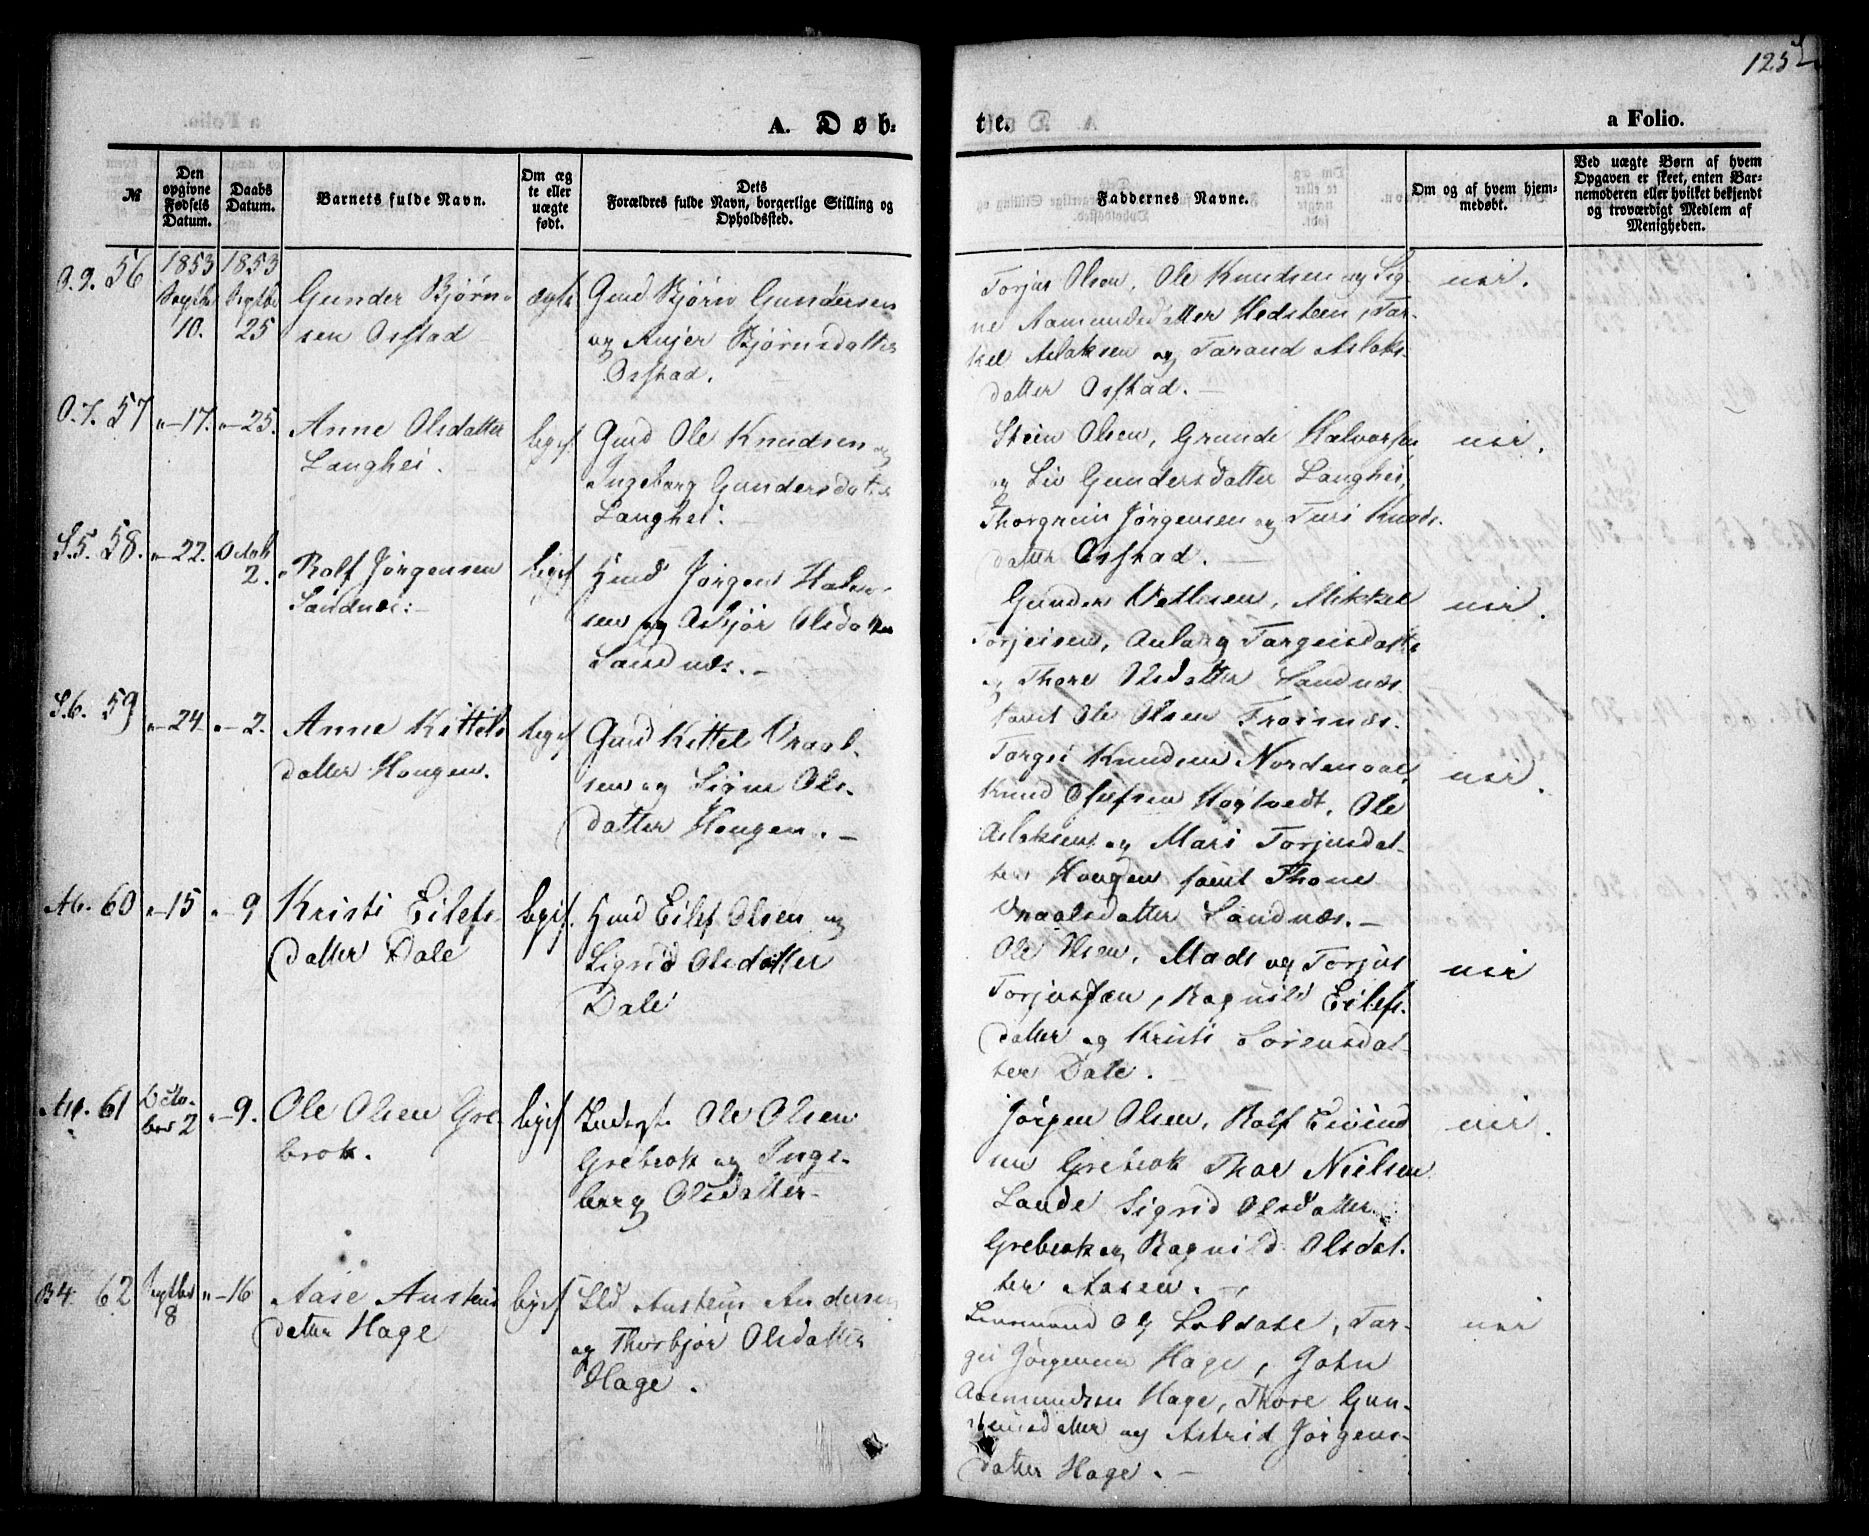 125
A. Døb-
te.
a Folio.
№
Den opgivne Fødsels Datum.
Daabs Datum.
Barnets fulde Navn.
Om ægte eller uægte født.
Dets Forældres fulde Navn, borgerlige Stilling og Opholdssted.
Faddernes Navne.
Om og af hvem hjemmedøbt.
Ved uægte Børn af hvem Opgaven er skeet, enten Barnemoderen eller hvilket bekjendt og troværdigt Medlem af Menigheden.
56
1853
10.
1853
25
Gunder Bjørn-
sen Osstad
ægte
Gmd Bjørn Gundersen
og Bjørnsdatter
Osstad.
Torjus Olsen, Ole Knudsen og Sig-
ne Aamundsdatter Hedsteen, Tar-
kel Aslaksen og Tarand Aslaks-
datter Osstad.
nei.
O.7. 57
"-17.
"-25.
Anne Olsdatter
Langhei.
liges
Gmd Ole Knudsen og
Ingeborg Gundersdatter
Langhei.
Stein Olsen, Grunde Halvorsen
og Liv Gundersdatter Langhei,
Thorgrim Jørgensen og Turi Knuds-
datter Osstad.
nei.
S.5. 58.
"-22.
Octob
2.
Rolf Jørgensen
Sandnæs
ligs
Hmd Jørgen
sen og Asbjør Olsdatter
Sandnæs.
Gunder Vetlesen, Mikkel
Torjeisen, Anlaug Targeisdatter
og Thore Olsdatter Sandnæs
samt Ole Olsen Frosnæs.
nei.
S.6. 59
"-24
"-2.
Anne Kittils
datter Hougen.
ligs
Gmd Kittel Vraal-
sen og Signe Ols-
datter Hougen.
Torgei Knudsen
Knud Olufsen Høgtvedt, Ole
Aslaksen og Mari Torjusdat-
ter Hougen samt Thone
Vraalsdatter Sandnæs.
nei.
60
"-15
"-9
Kristi Eilefs-
datter Dale
ligs.
Hmd Eilef Olsen og
Sigrid Olsdatter
Dale
Ole Olsen, Mads og Torjus
Torjussen, Ragnild Eilefs-
datter og Kristi Sørensdat-
ter Dale.
nei
61
Octo-
ber 2
"-9.
Ole Olsen Gre
brok.
ligs
Inderst Ole Olsen
Grebrok og Inge-
borg Olsdatter
Jørgen Olsen, Rolf Eivind
sen Grebrok Thor Nielsen
Lande Sigrid Olsdatter
Grebrok og Ragnild Olsdat-
ter Aasen.
nei.
B4. 62
8
"-16
Aase Austens
datter Hage
ligs
Austen Andersen
og Thorbjør Olsdatter
Hage.
Lensmand Lildal, Tar-
gei Jørgensen Hage, John
Aamundsen Hage, Thore Gun-
datter og Astrid Jørgens-
datter Hage.
nei